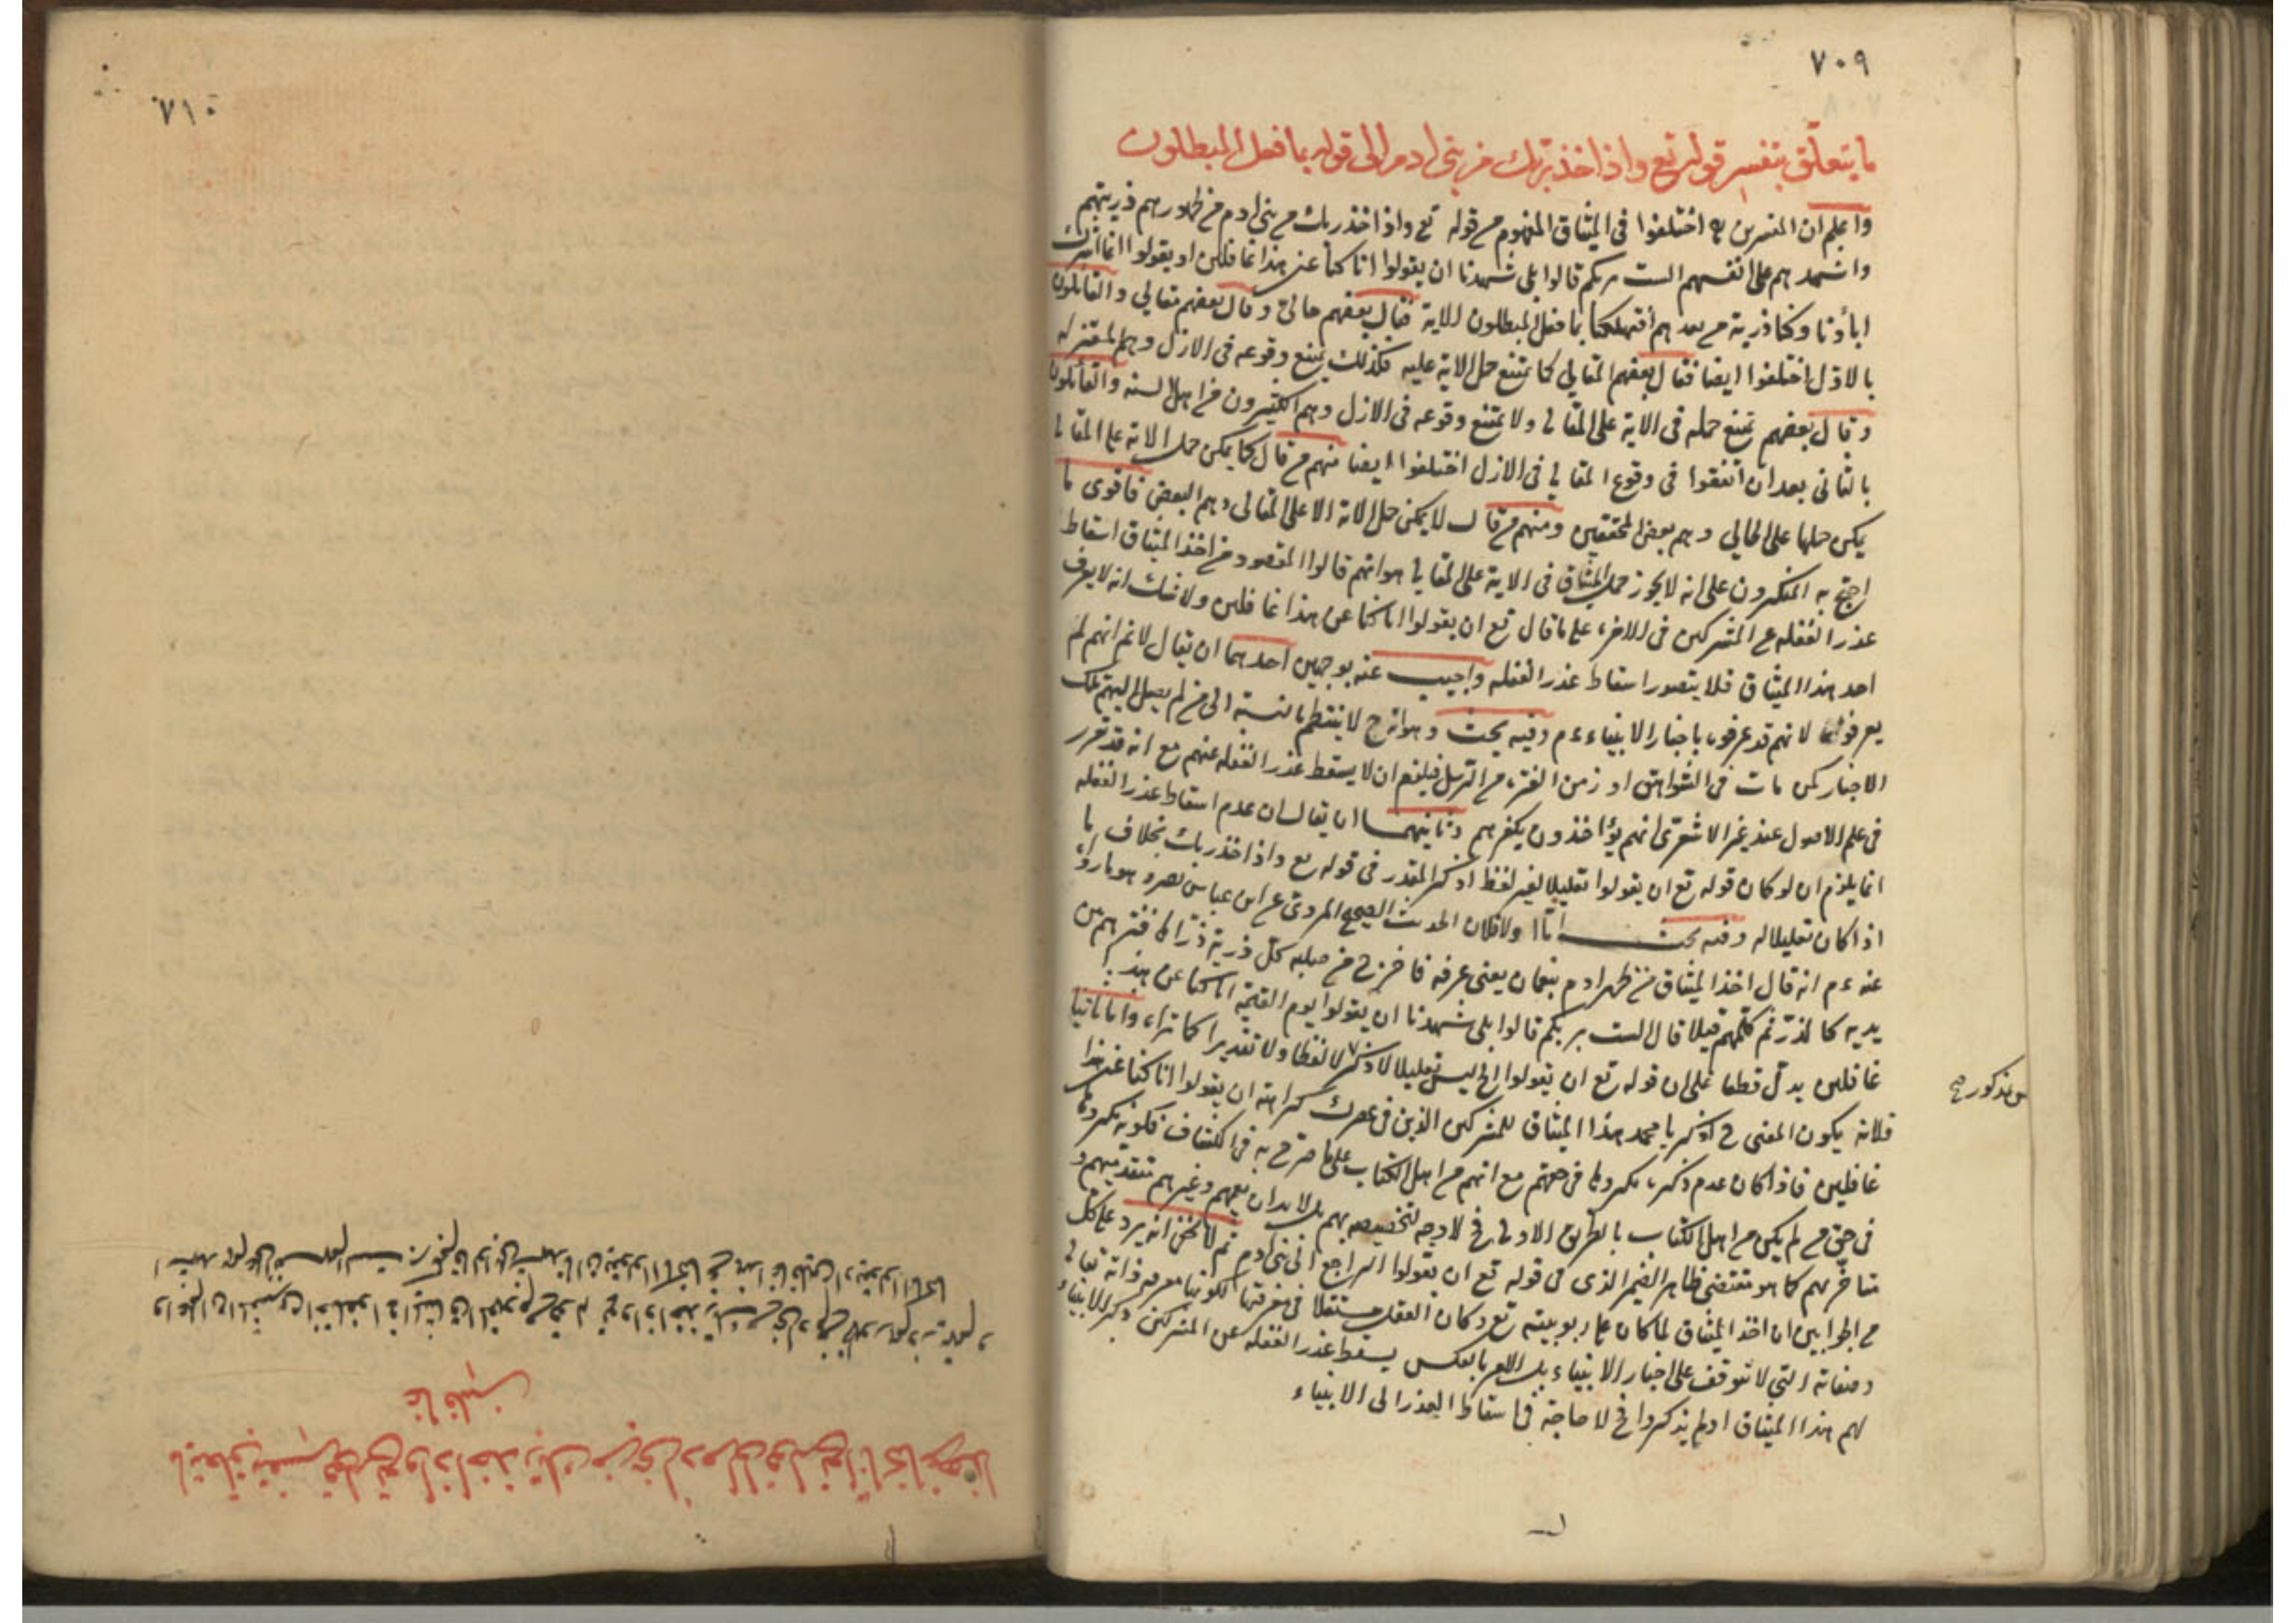 ٧٠٩
ما يتعلق بتفسير قوله تع واذ اخذ ربك من بنى ادم الى قوله بما فعل المبطلون
واعلم ان المفسرين اختلفوا فى الميثاق المفهوم من قوله تع واذ اخذ ربك من بنى ادم من ظهورهم ذريتهم
واشهدهم على انفسهم الست بربكم قالوا بلى شهدنا ان يقولوا انا كنا عن هذا غافلين او يقولوا انما اشرك
اباؤنا وكنا ذرية من بعدهم أفتهلكنا بما فعل المبطلون الاية فقال بعضهم حالى وقال بعضهم مقالي والقائلون
بالاول اختلفوا ايضا فقال بعضهم المقالي كما يمتنع حمل الاية عليه فكذلك يمتنع وقوعه فى الازل وهم المعتزله
وقال بعضهم يمتنع حمله فى الاية على المقالى ولا يمتنع وقوعه فى الازل وهم الكثيرون من اهل السنه والقائلون
بالثانى بعد ان اتفقوا فى وقوع المقالى فى الازل اختلفوا ايضا منهم من قال كما يمكن حمل الاية على المقالى
يمكن حملها على الحالي وهم بعض المحققين ومنهم من قال لا يمكن حمل الاية الا على المقالى وهم البعض فاقوى ما
احتج به المنكرون على انه لا يجوز حمل الميثاق فى الاية على المقالى هو انهم قالوا المقصود من اخذ الميثاق اسقاط
عذر الغفله عن المشركين فى الاخرة على ما قال تع ان يقولوا انا كنا عن هذا غافلين ولا شك انه لا يعرف
احد هذا الميثاق فلا يتصور اسقاط عذر الغفله واجيب عنه بوجهين احدهما ان يقال لا نم انهم لم
يعرفوا لانهم قد عرفوه باخبار الانبياء ءم وفيه بحث وهو انه ح لا ينتظم بالنسبة الى من لم يصل اليهم تلك
الاخبار كمن مات فى الشواهق او زمن الفترة من الرسل فيلزم ان لا يسقط عذر الغفله عنهم مع انه قد تقرر
فى علم الاصول عند غير الاشعرى انهم يؤاخذون بكفرهم وثانيهما ان يقال ان عدم اسقاط عذر الغفله
انما يلزم ان لو كان قوله تع ان يقولوا تعليلا لغير لفظ اذكر المقدر فى قوله تع واذ اخذ ربك بخلاف ما
اذا كان تعليلا له وفيه بحث امّا اولا فلان الحديث الصحيح المروى عن ابن عباس رض وهو ما رواه
عنه ءم انه قال اخذ الميثاق من ظهر ادم بنعمان يعنى عرفه فاخرج من صلبه كل ذرية ذراها فنثرهم بين
يديه كالذرّ ثم كلمهم قبلا قال الست بربكم قالوا بلى شهدنا ان يقولوا يوم القيمة انا كنا عن هذا
غافلين يدل قطعا على ان قوله تع ان يقولوا الخ ليس تعليلا لاذكر لا لفظا ولا تقديرا كما تراه واما ثانيا
فلانه يكون المعنى ح اذكر يا محمد هذا الميثاق للمشركين الذين فى عصرك كراهة ان يقولوا انا كنا عن هذا
غافلين فاذا كان عدم ذكره مكروها فى حقهم مع انهم من اهل الكتاب على ما صرح به فى الكشاف فكونه مكروها
فى حق من لم يكن من اهل الكتاب بالطريق الاولى فح لا وجه لتخصيصه بهم بل لا بد ان يعمهم وغيرهم متقدميهم و
متأخريهم كما هو مقتضى ظاهر الضمير الذى فى قوله تع ان يقولوا الراجع الى بنى ادم ثم لا يخفى انه يرد على كل
من الجوابين ان اخذ الميثاق لما كان على ربوبيته تع وكان العقل مستقلا فى معرفتها لكونها معرفة ذاته تعالى
وصفاته التى لا تتوقف على اخبار الانبياء بل الامر بالعكس يسقط عذر الغفله عن المشركين ذكر الانبياء
لهم هذا الميثاق او لم يذكروا فح لا حاجة فى اسقاط العذر الى الانبياء
مذكور صح
٧١٠
ما يتعلق بتفسير قوله تع واذ اخذ ربك من بنى ادم الى قوله تع انا كنا عن هذا
غافلين
واعلم ان المفسرين اختلفوا فى الميثاق المفهوم من قوله تع واذ اخذ ربك من بنى ادم من ظهورهم ذريتهم و
اشهدهم على انفسهم الست بربكم قالوا بلى شهدنا ان يقولوا انا كنا عن هذا غافلين او يقولوا